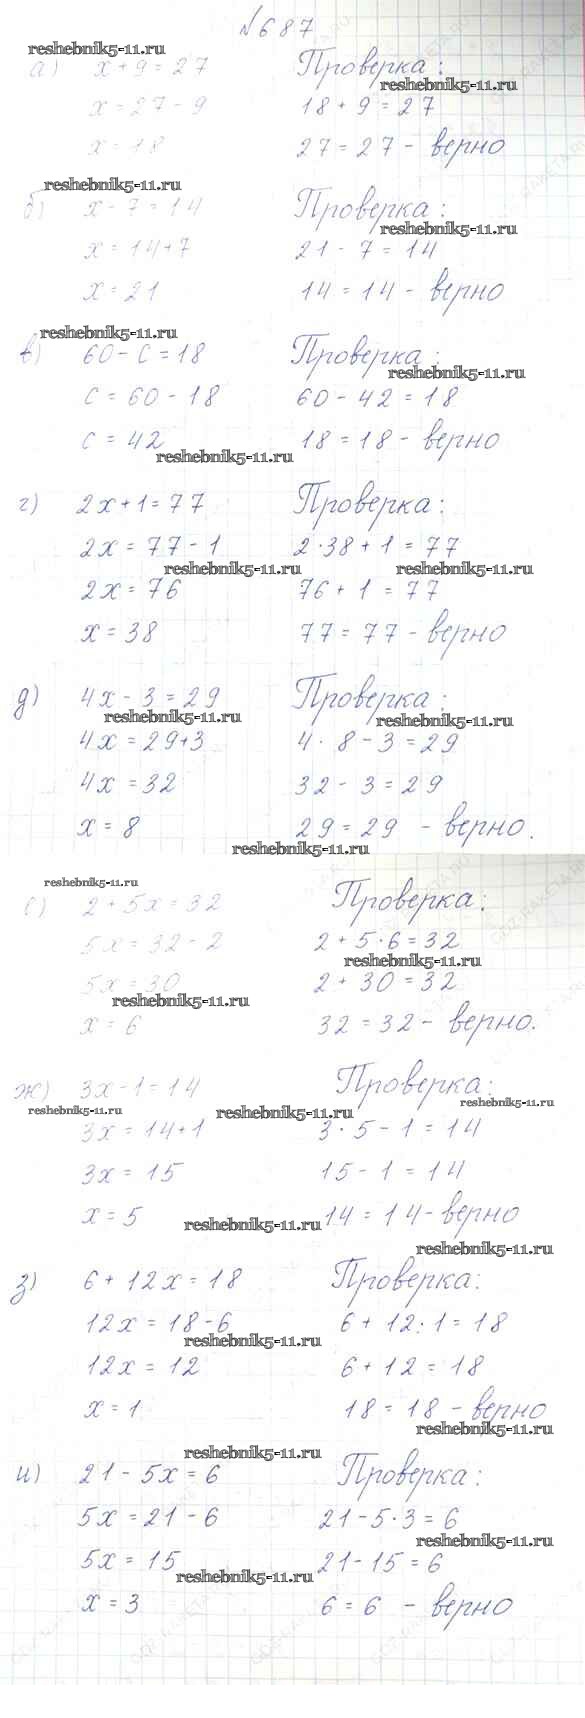 № 687
reshebnik5-11.ru
а) x + 9 = 27 Проверка:
reshebnik5-11.ru
x = 27 - 9 18 + 9 = 27
x = 18 27 = 27 - верно
reshebnik5-11.ru
б) x - 7 = 14 Проверка:
reshebnik5-11.ru
x = 14 + 7 21 - 7 = 14
x = 21 14 = 14 - верно
reshebnik5-11.ru
в) 60 - c = 18 Проверка:
reshebnik5-11.ru
c = 60 - 18 60 - 42 = 18
c = 42 18 = 18 - верно
reshebnik5-11.ru
г) 2x + 1 = 77 Проверка:
2x = 77 - 1 2 · 38 + 1 = 77
reshebnik5-11.ru reshebnik5-11.ru
2x = 76 76 + 1 = 77
x = 38 77 = 77 - верно
д) 4x - 3 = 29 Проверка:
reshebnik5-11.ru reshebnik5-11.ru
4x = 29 + 3 4 · 8 - 3 = 29
4x = 32 32 - 3 = 29
x = 8 29 = 29 - верно.
reshebnik5-11.ru
reshebnik5-11.ru
е) 2 + 5x = 32 Проверка:
5x = 32 - 2 2 + 5 · 6 = 32
reshebnik5-11.ru
5x = 30 2 + 30 = 32
reshebnik5-11.ru
x = 6 32 = 32 - верно.
ж) 3x - 1 = 14 Проверка:
reshebnik5-11.ru reshebnik5-11.ru reshebnik5-11.ru
3x = 14 + 1 3 · 5 - 1 = 14
3x = 15 15 - 1 = 14
x = 5 14 = 14 - верно
reshebnik5-11.ru
reshebnik5-11.ru
з) 6 + 12x = 18 Проверка:
12x = 18 - 6 6 + 12 : 1 = 18
reshebnik5-11.ru
12x = 12 6 + 12 = 18
x = 1 18 = 18 - верно
reshebnik5-11.ru
reshebnik5-11.ru
и) 21 - 5x = 6 Проверка:
5x = 21 - 6 21 - 5 · 3 = 6
reshebnik5-11.ru
5x = 15 21 - 15 = 6
reshebnik5-11.ru
x = 3 6 = 6 - верно